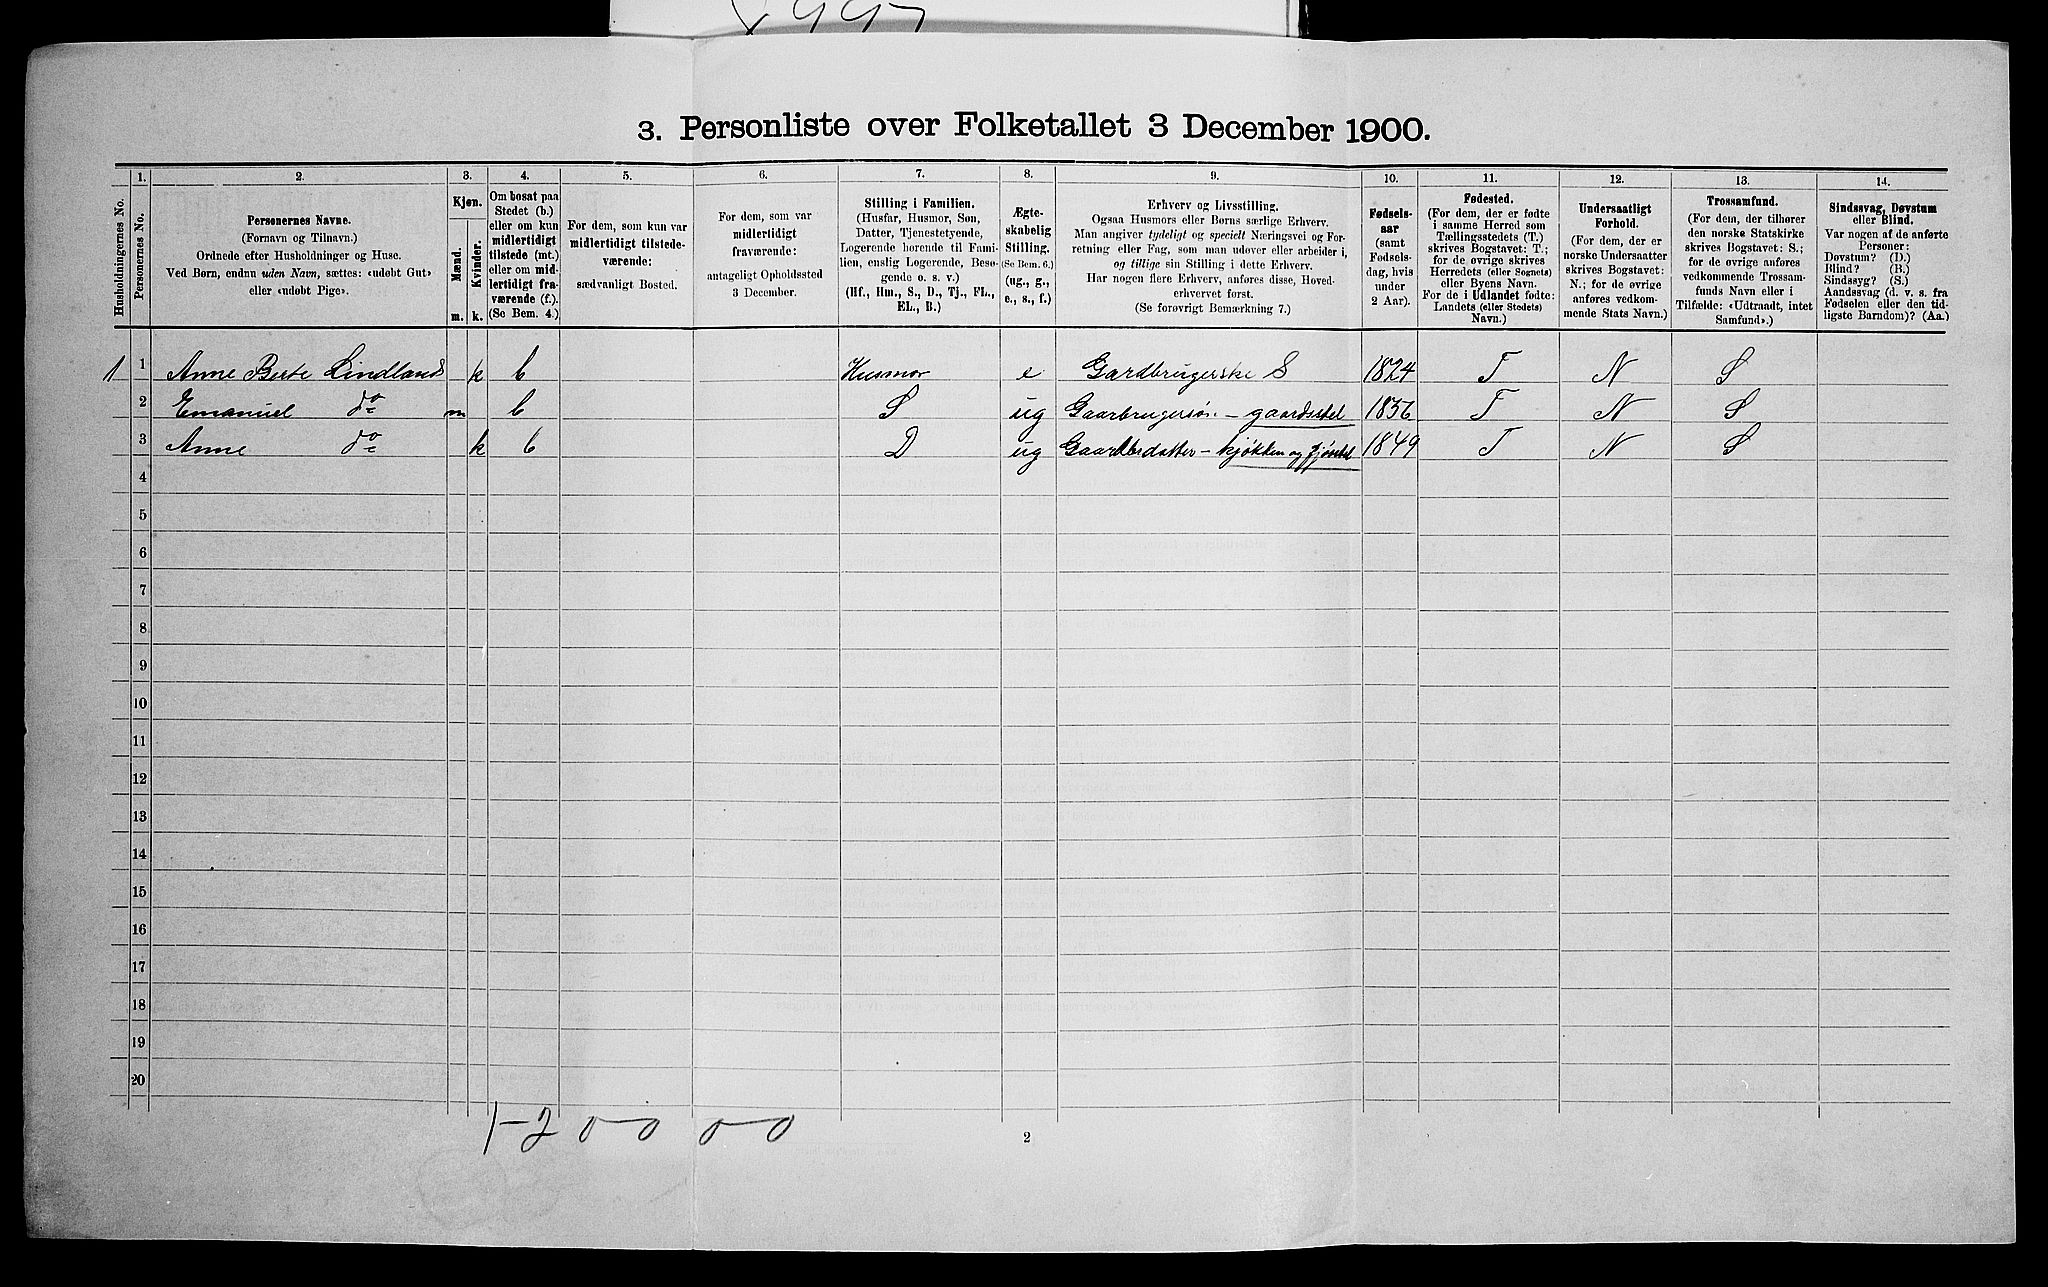 3. Personliste over Folketallet 3 December 1900.
Husholdningernes No.
1.
Personernes No.
2.
Personernes Navne.
(Fornavn og Tilnavn.)
Ordnede efter Husholdninger og Huse.
Ved Børn, endnu uden Navn, sættes: «udøbt Gut»
eller «udøbt Pige».
3.
Kjøn.
Mænd.
Kvinder.
m.
k.
4.
Om bosat paa
Stedet (b.)
eller om kun
midlertidigt
tilstede (mt.)
eller om mid-
lertidigt fra-
værende (f.).
(Se Bem. 4.)
5.
For dem, som kun var
midlertidigt tilstede-
værende:
sædvanligt Bosted.
6.
For dem, som var
midlertidigt
fraværende:
antageligt Opholdssted
3 December.
7.
Stilling i Familien.
(Husfar, Husmor, Søn,
Datter, Tjenestetyende,
Logerende hørende til Fami-
lien, enslig Logerende, Besø-
gende o. s. v.)
(Hf., Hm., S., D., Tj., FL.,
EL., B.)
8.
Ægte-
skabelig
Stilling.
(Se Bem. 6.)
(ug., g.,
e., s., f.)
9.
Erhverv og Livsstilling.
Ogsaa Husmors eller Børns særlige Erhverv.
Man angiver tydeligt og specielt Næringsvei og For-
retning eller Fag, som man udøver eller arbeider i,
og tillige sin Stilling i dette Erhverv.
Har nogen flere Erhverv, anføres disse, Hoved-
erhvervet først.
(Se forøvrigt Bemærkning 7.)
10.
Fødsels-
aar
(samt
Fødsels-
dag, hvis
under
2 Aar).
11.
Fødested.
(For dem, der er fødte
i samme Herred som
Tællingsstedets (T.)
skrives Bogstavet: T.;
for de øvrige skrives
Herredets (eller Sognets)
eller Byens Navn.
For de i Udlandet fødte:
Landets (eller Stedets)
Navn.)
12.
Undersaatligt
Forhold.
(For dem, der er
norske Undersaatter
skrives Bogstavet:
N.; for de øvrige
anføres vedkom-
mende Stats Navn.)
13.
Trossamfund.
(For dem, der tilhører
den norske Statskirke
skrives Bogstavet: S.;
for de øvrige anføres
vedkommende Trossam-
funds Navn eller i
Tilfælde: «Udtraadt, intet
Samfund».)
14.
Sindssvag, Døvstum
eller Blind.
Var nogen af de anførte
Personer:
Døvstum? (D.)
Blind? (B.)
Sindssyg? (S.)
Aandssvag (d. v. s. fra
Fødselen eller den tid-
ligste Barndom)? (Aa.)
1 1 Anne Berte Lindland k b Husmor e Gardbrugerske S 1824 T N S
2 Emanuel do m b S ug - gaardsstel 1856 T N S
3 Anne do k b D ug - kjøkken og fjøsstel 1849 T N S
4
5
6
7
8
9
10
11
12
13
14
15
16
17
18
19
20
1-2 0-0 0-0
2